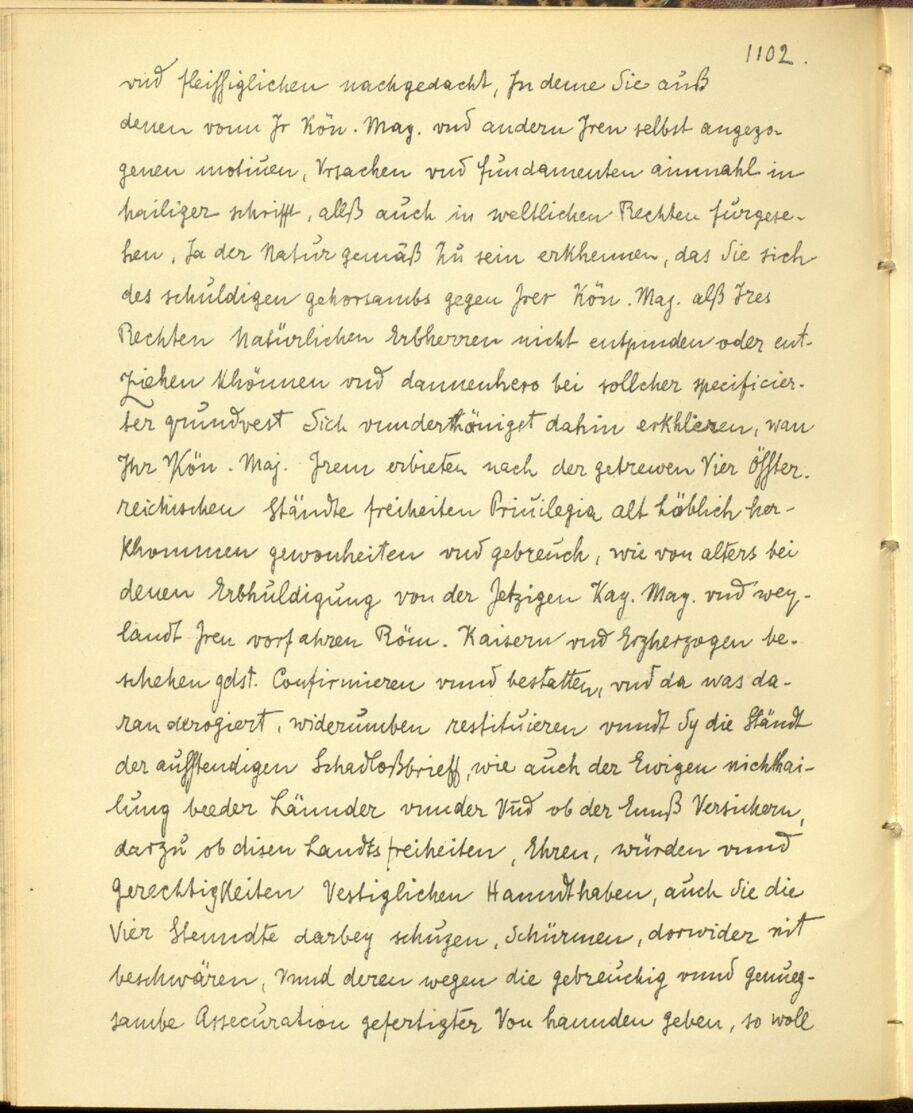 1102.
vnd fleissiglichen nachgedacht, In deme Sie auß
denen vonn Ir Kön. May. vnd andern Iren selbst angezo-
genen motiuen, Vrsachen vnd fundamenten ainmahl in
hailiger schrifft, allß auch in weltlichen Rechten furgese-
hen, Ja der Natur gemäß zu sein erkhennen, das Sie sich
des schuldigen gehorsambs gegen Irer Kön. May. alß Ires
Rechten Natürlichen Erbherren nicht entpinden oder ent-
ziehen khönnen vnd dannenhero bei sollcher specificier-
ter grundvest Sich vnnderthönigst dahin erkhleren, wan
Ihr Kön. Maj. Irem erbieten nach der getrewen Vier Össter-
reichischen Ständte freiheiten Priuilegia alt Löblich her-
khommen gewonheiten vnd gebreuch, wie von alters bei
denen Erbhuldigung von der Jetzigen Kay. May. vnd wey-
landt Iren vorfahren Röm. Kaisern vnd Erzherzogen be-
schehen gdst. Confirmieren vnnd bestatten, vnd da was da-
ran derogiert, widerumben restituieren vnndt Sy die Ständt
der aufstendigen Schadloßbrieff, wie auch der Ewigen nichthai-
lung beeder Lännder vnnder Vnd ob der Ennß Versichern,
darzu ob disen Landtsfreiheiten, Ehren, würden vnnd
Gerechtigkheiten Vestiglichen Hanndthaben, auch Sie die
Vier Stenndte darbey schuzen, Schürmen, dorwider nit
beschwären, Vnnd deren wegen die gebreuchig vnnd genueg-
sambe Assecuration gefertigter Von hannden geben, so woll